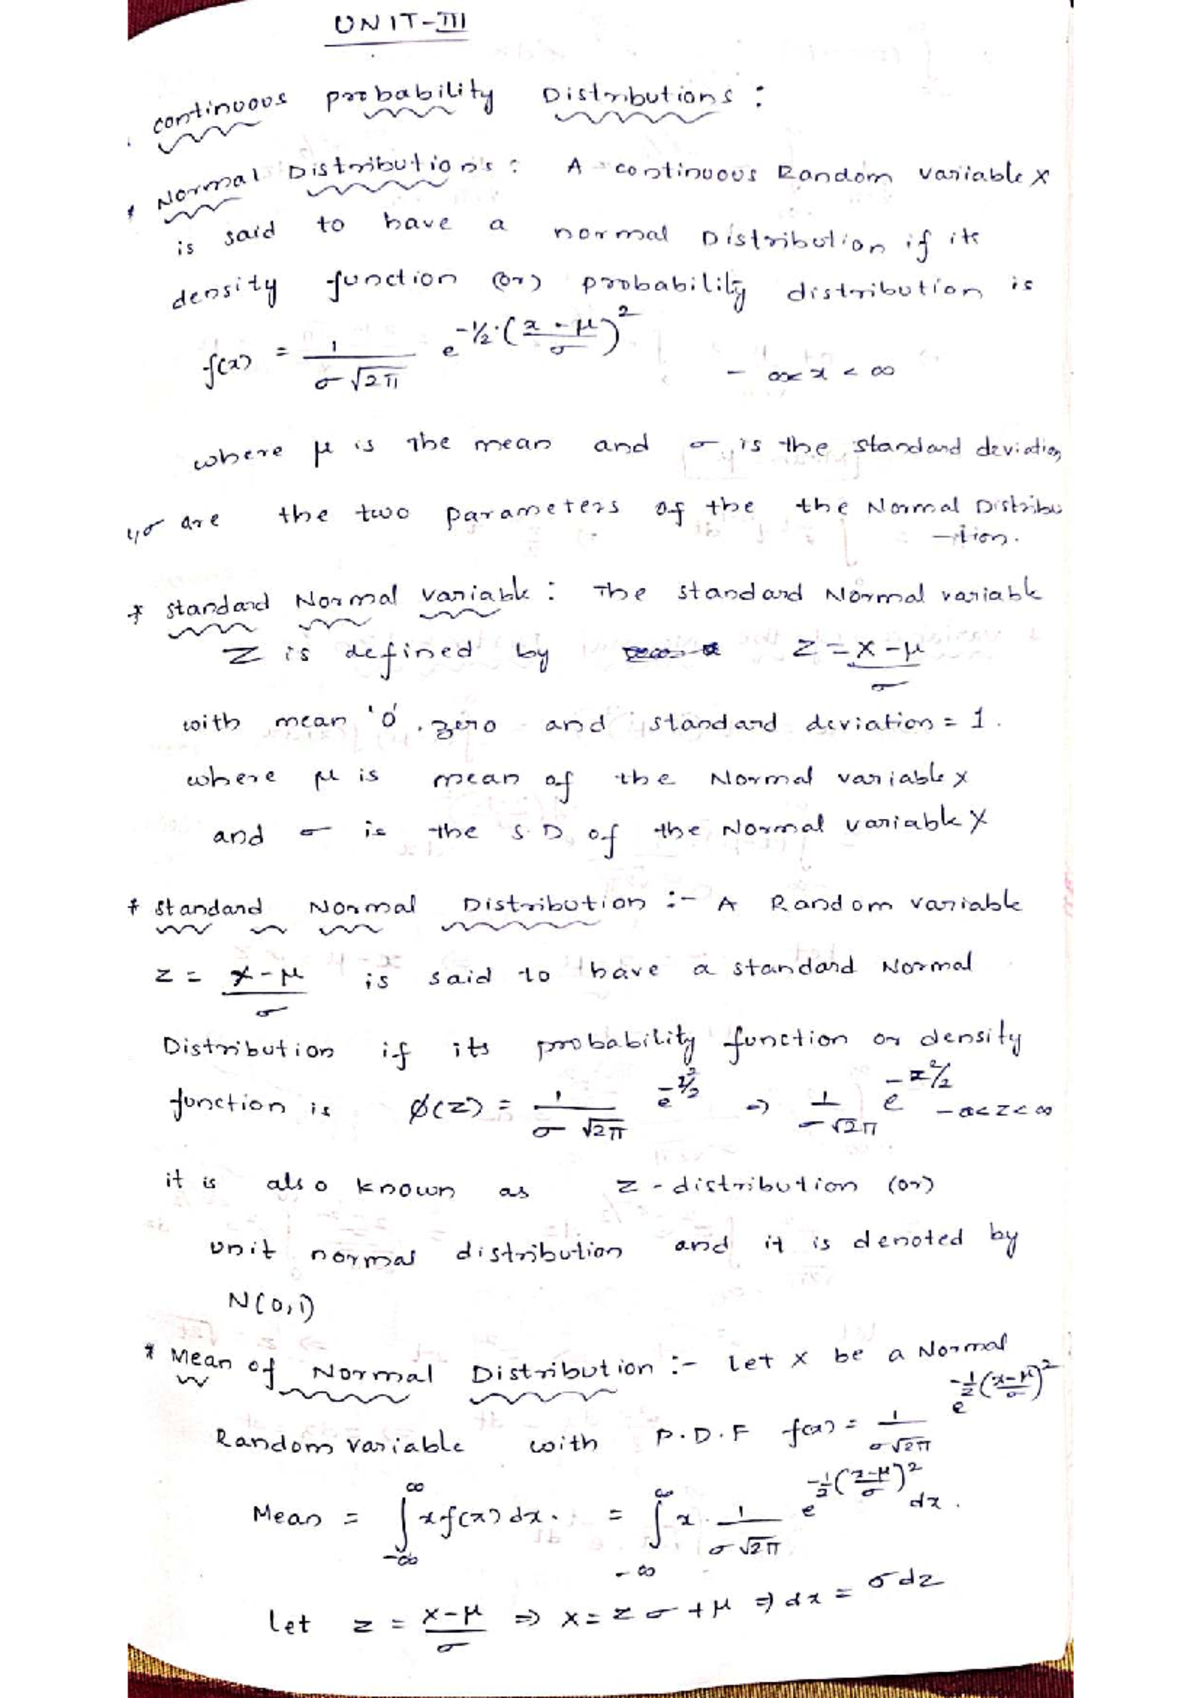 UNIT-III
continuous probability Distributions :
* Normal Distributions : A continuous Random variable X
is said to have a normal Distribution if its
density function (or) probability distribution is
f(x) = 1/(σ√2π) e^(-1/2·((x-μ)/σ)^2) - ∞< x < ∞
where μ is the mean and σ is the standard deviation
μ,σ are the two parameters of the the Normal Distribu
-tion.
* standard Normal variable : The standard Normal variable
Z is defined by Z = (X-μ)/σ
with mean '0' . zero and standard deviation = 1.
where μ is mean of the Normal variable X
and σ is the S.D of the Normal variable X
* standard Normal Distribution :- A Random variable
Z = (X-μ)/σ is said to have a standard Normal
Distribution if its probability function or density
function is φ(Z) = 1/(σ√2π) e^(-z²/2) ⇒ 1/(σ√2π) e^(-z²/2) -∞<Z<∞
it is also known as Z-distribution (or)
unit normal distribution and it is denoted by
N(0,1)
* Mean of Normal Distribution :- Let X be a Normal
Random variable with P.D.F f(x) = 1/(σ√2π) e^(-1/2((x-μ)/σ)^2)
Mean = ∫_{-∞}^{∞} x f(x) dx. = ∫_{-∞}^{∞} x · 1/(σ√2π) e^(-1/2((x-μ)/σ)^2) dx.
Let Z = (X-μ)/σ ⇒ X = Zσ+μ ⇒ dx = σdz